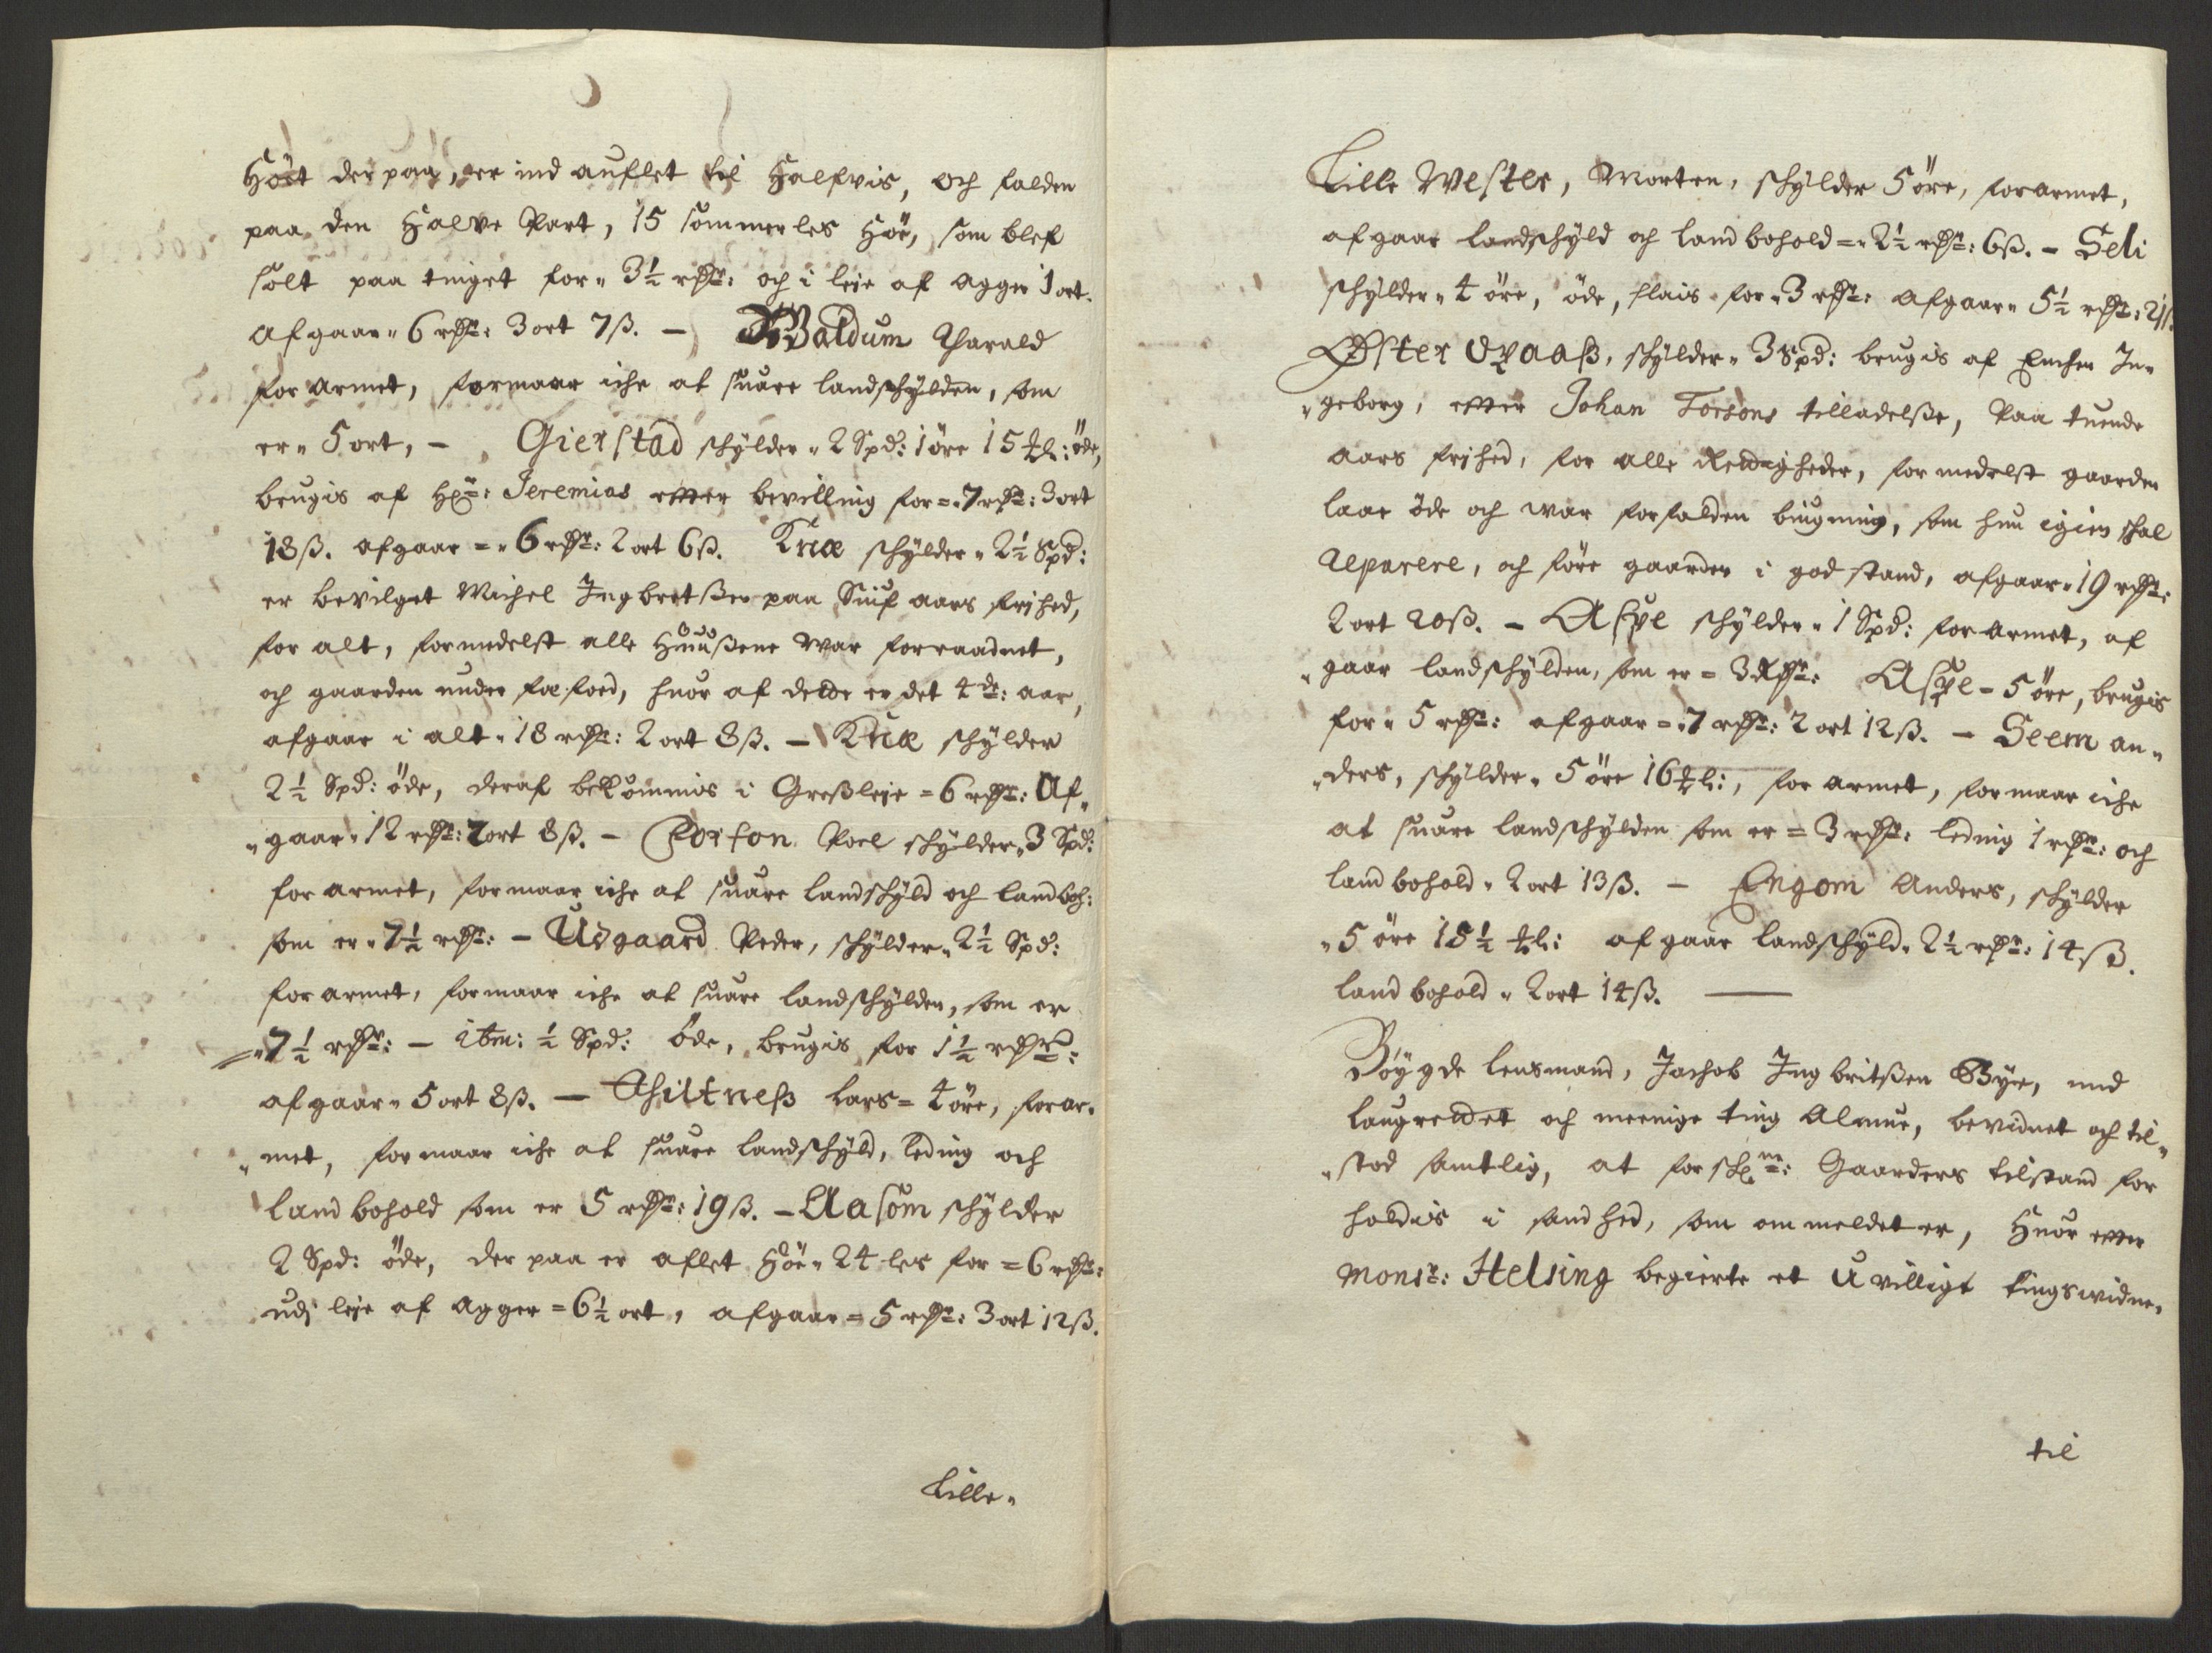 Höst der paa, er ind auflet til Halfvis, och falden
paa den Halve Part, 15 sommerles Höe, som blef
solt paa tinget for " 3½ rdr: och i leje af agger 1 ort.
afgaar " 6 rdr: 3 ort 7 ß. – Waldum Harald
forarmet, formaar iche at suare landschylden, som
er " 5 ort, – Gierstad schylder " 2 Spd: 1 öre 15 : öde,
brugis af Hr: Jeremias efter bevilling for = " 7 rdr: 3 ort
18 ß. afgaar = " 6 rdr: 2 ort 6 ß. Knæ schylder " 2½ Spd:
er bevilget Michel Ingbretßen paa Siuf aars frihed,
for alt, formedelst alle Huußene war forraadnet,
och gaarden under fæ foed, huor af dette er det 4de: aar,
afgaar i alt " 18 rdr: 2 ort 8 ß. – Knæ schylder
2½ Spd: öde, deraf bekommis i Græßleje = 6 rdr: Af "
" gaar " 12 rdr: 2 ort 8 ß. – Forfon Poel schylder " 3 Spd:
forarmet, formaar iche at suare landschyld och landboh:
som er " 7½ rdr: – Udgaard Peder, schylder " 2½ Spd:
forarmet, formaar iche at suare landschylden, som er
" 7½ rdr: – itm: ½ Spd: öde, brugis for 1½ rdr:
afgaar " 5 ort 8 ß. – Lars = 4 öre, forar "
" met, formaar iche at suare landschyld, leding och
landbohold som er 5 rdr: 19 ß. – Aasom schylder
2 Spd: öde, der paa er aflet Höe " 24 les for = 6 rdr:
udj leje af agger = 6½ ort, afgaar = 5 rdr: 3 ort 12 ß.
Lille "
Lille Wester, Morten, schylder 5 öre, forarmet,
afgaar landschyld och landbohold = " 2½ rdr: 6 ß. – Seli
schylder " 4 öre, öde, slais for " 3 rdr: afgaar " 5½ rdr: 21 ß.
Øster Qvaaß, schylder " 3 Spd: brugis af Enchen In "
" geborg, efter Johan Torsons tilladelße, Paa tuende
aars frihed, for alle Rettigheder, formedelst gaarden
laae öde och war forfalden biugning, som hun igien schal
Reparere, och före gaarden i god stand, afgaar " 19 rdr:
2 ort 20 ß. – Aspe schylder " 1 Spd: forarmet, af
" gaar landschylden, som er = 3 Rdr: Aspe – 5 öre, brugis
for " 5 rdr: afgaar = " 7 rdr: 2 ort 12 ß. – Seem an "
" ders, schylder " 5 öre 16 :, forarmet, formaar iche
at suare landschylden som er = 3 rdr: leding 1 rdr: och
landbohold " 2 ort 13 ß. – Engom Anders, schylder
" 5 öre 15½ : afgaar landschyld " 2½ rdr: 14 ß.
landbohold " 2 ort 14 ß. –
Böygde lensmand, Jachob Ingbritßen Bye, med
laugrettet och meenige ting Almue, bevidnet och til "
" stod samtlig, at for schm: Gaarders tilstand for
holdis i sandhed, som om meldet er, Huor efter
Monsr: Helsing begierte et Uvilligt tingswidne "
til